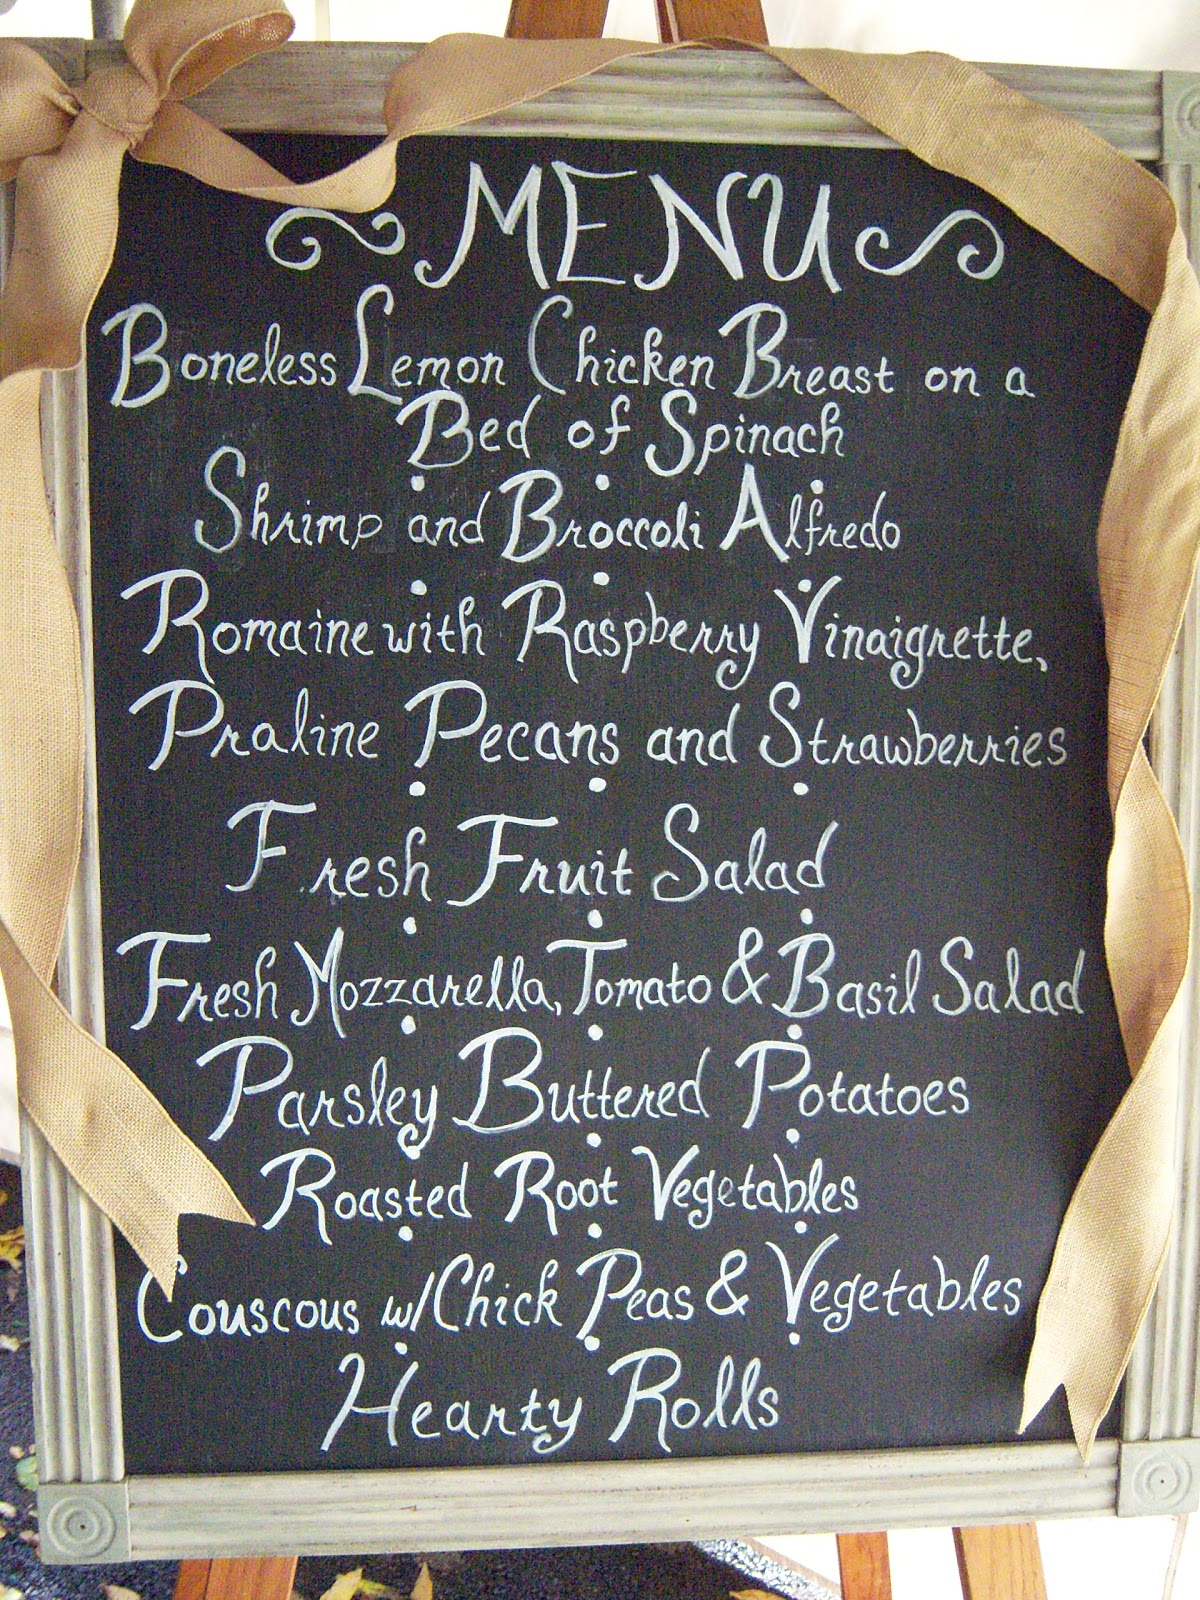 MENU
Boneless Lemon Chicken Breast on a
Bed of Spinach
Shrimp and Broccoli Alfredo
Romaine with Raspberry Vinaigrette,
Praline Pecans and Strawberries
Fresh Fruit Salad
Fresh Mozzarella, Tomato & Basil Salad
Parsley Buttered Potatoes
Roasted Root Vegetables
Couscous w/Chick Peas & Vegetables
Hearty Rolls